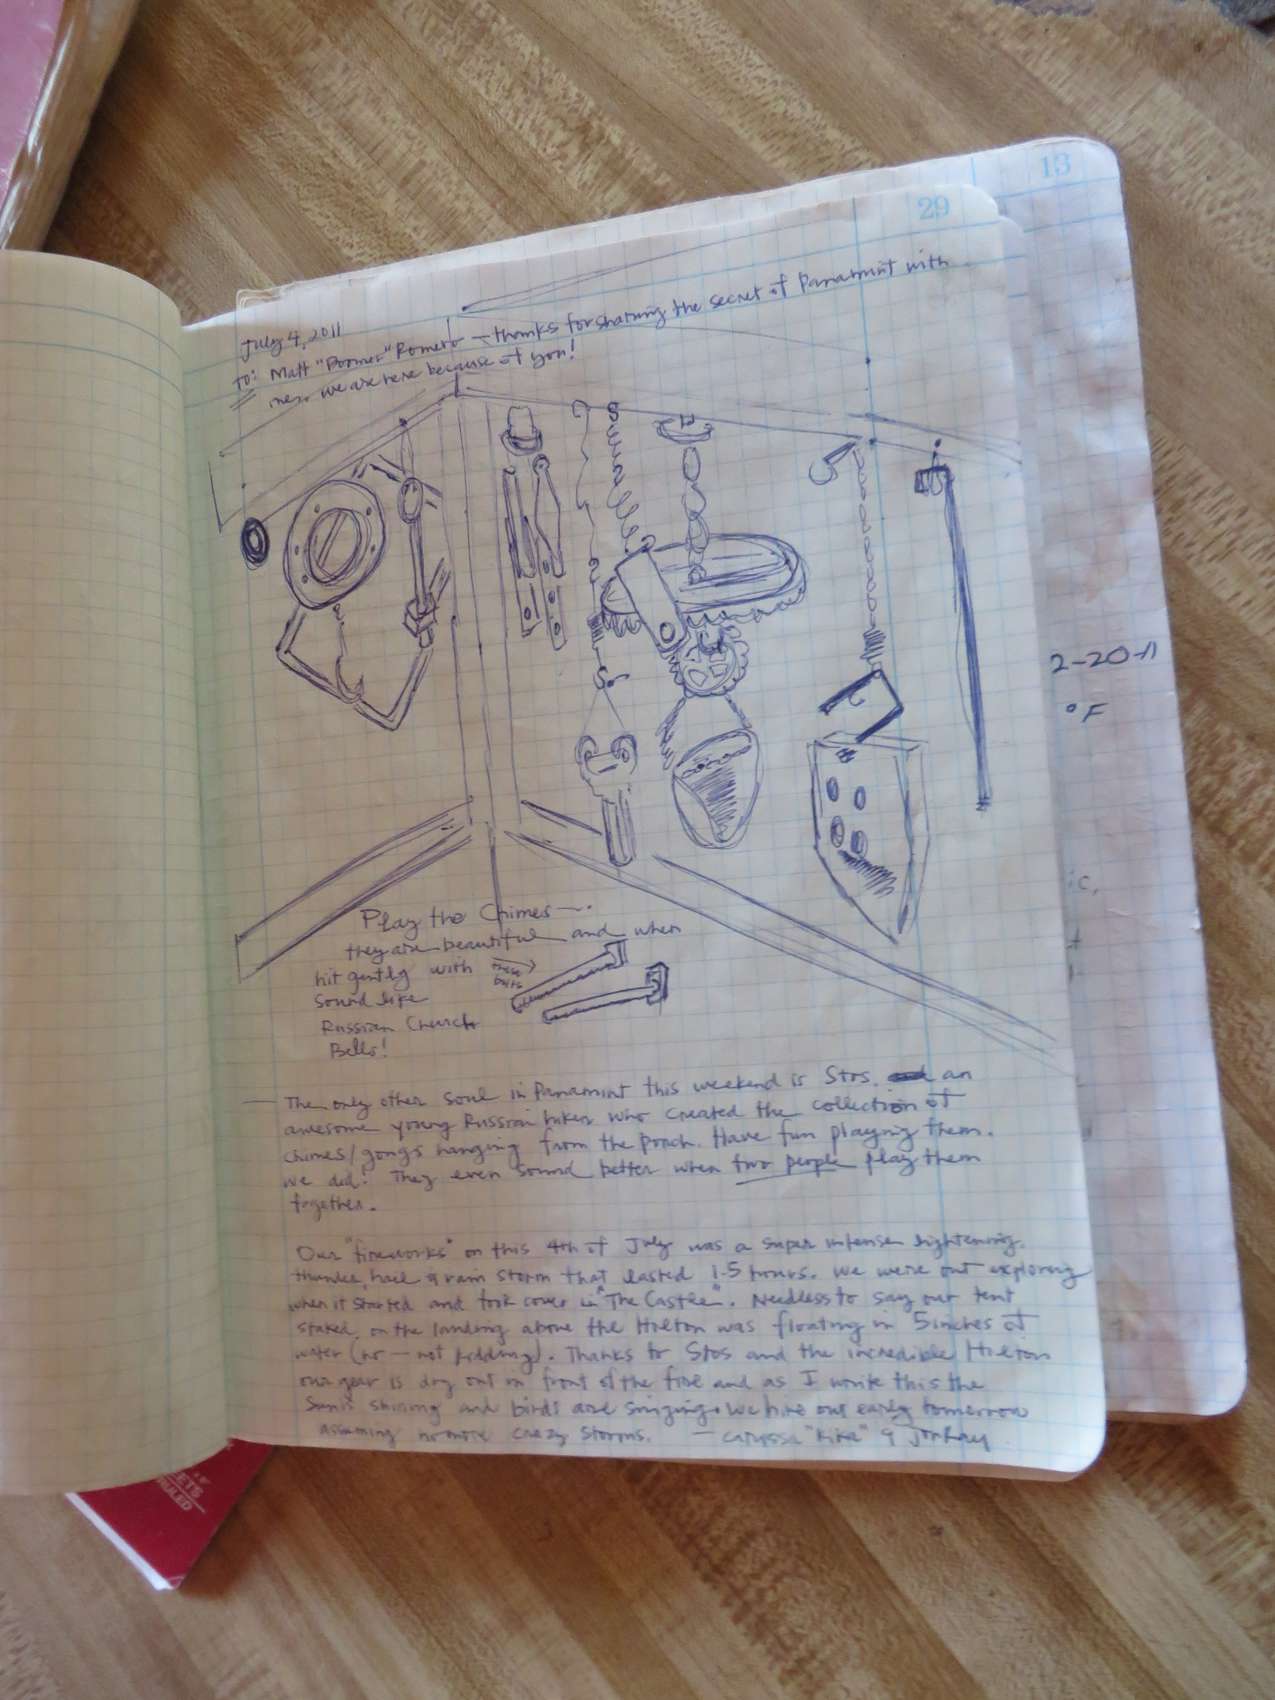 13
29
July 4, 2011
To: Matt "Boomer" Romero — thanks for sharing the secret of Panamint with
me. we are here because of you!
2-20-11
°F
ic,
t
Play the Chimes —.
they are beautiful and when
hit gently with these bolts
sound like
Russian Church
Bells!
— The only other soul in Panamint this weekend is Stos, an
awesome young Russian hiker who created the collection of
chimes/gongs hanging from the porch. Have fun playing them.
we did! They even sound better when two people play them
together.
Our "fireworks" on this 4th of July was a super intense lightening,
thunder, hail & rain storm that lasted 1.5 hours. We were out exploring
when it started and took cover in "The Castle". Needless to say our tent
staked on the landing above the Hilton was floating in 5 inches of
water (no — not kidding). Thanks to Stos and the incredible Hilton
our gear is dry out in front of the fire and as I write this the
sun is shining and birds are singing. We hike out early tomorrow
assuming no more crazy storms. — "Kika" &
ETS
RULED